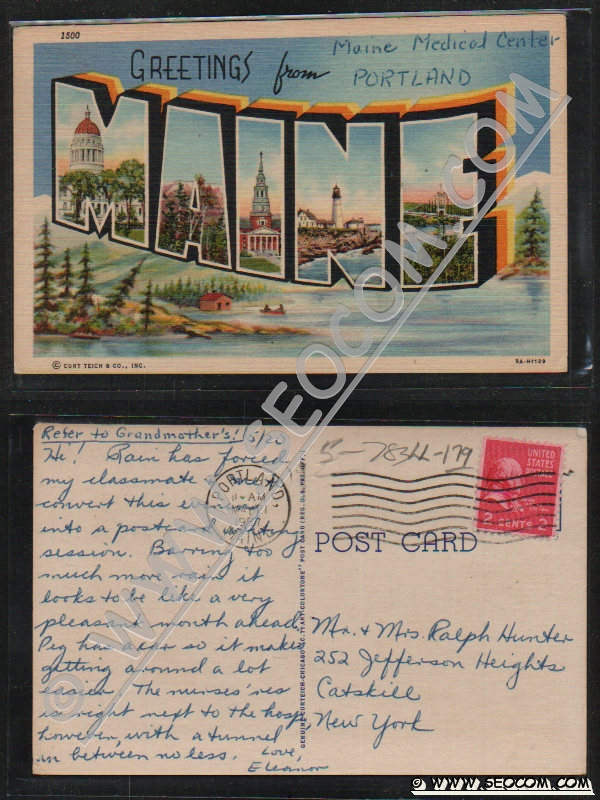 1500
GREETINGS from
Maine Medical Center
PORTLAND
MAINE
© CURT TEICH & CO., INC.
5A-H1129
WWW.SEOCOM.COM
Refer to Grandmother's! 5/20
Hi! Rain has forced
my classmate
convert this
into a postcard
session. Barring too
much more rain it
looks to be like a very
pleasant month ahead.
Peg has a car so it makes
getting around a lot
easier. The nurses' res
is right next to the hosp,
however, with a tunnel
in between no less. Love,
Eleanor
PORTLAND
11-AM
5-78344-179
UNITED
STATES
2 CENTS 2
POST CARD
GENUINE CURTEICH-CHICAGO "C.T. ART-COLORTONE" POST CARD (REG. U.S. PAT. OFF.)
Mr. & Mrs. Ralph Hunter
252 Jefferson Heights
Catskill
New York
© WWW.SEOCOM.COM